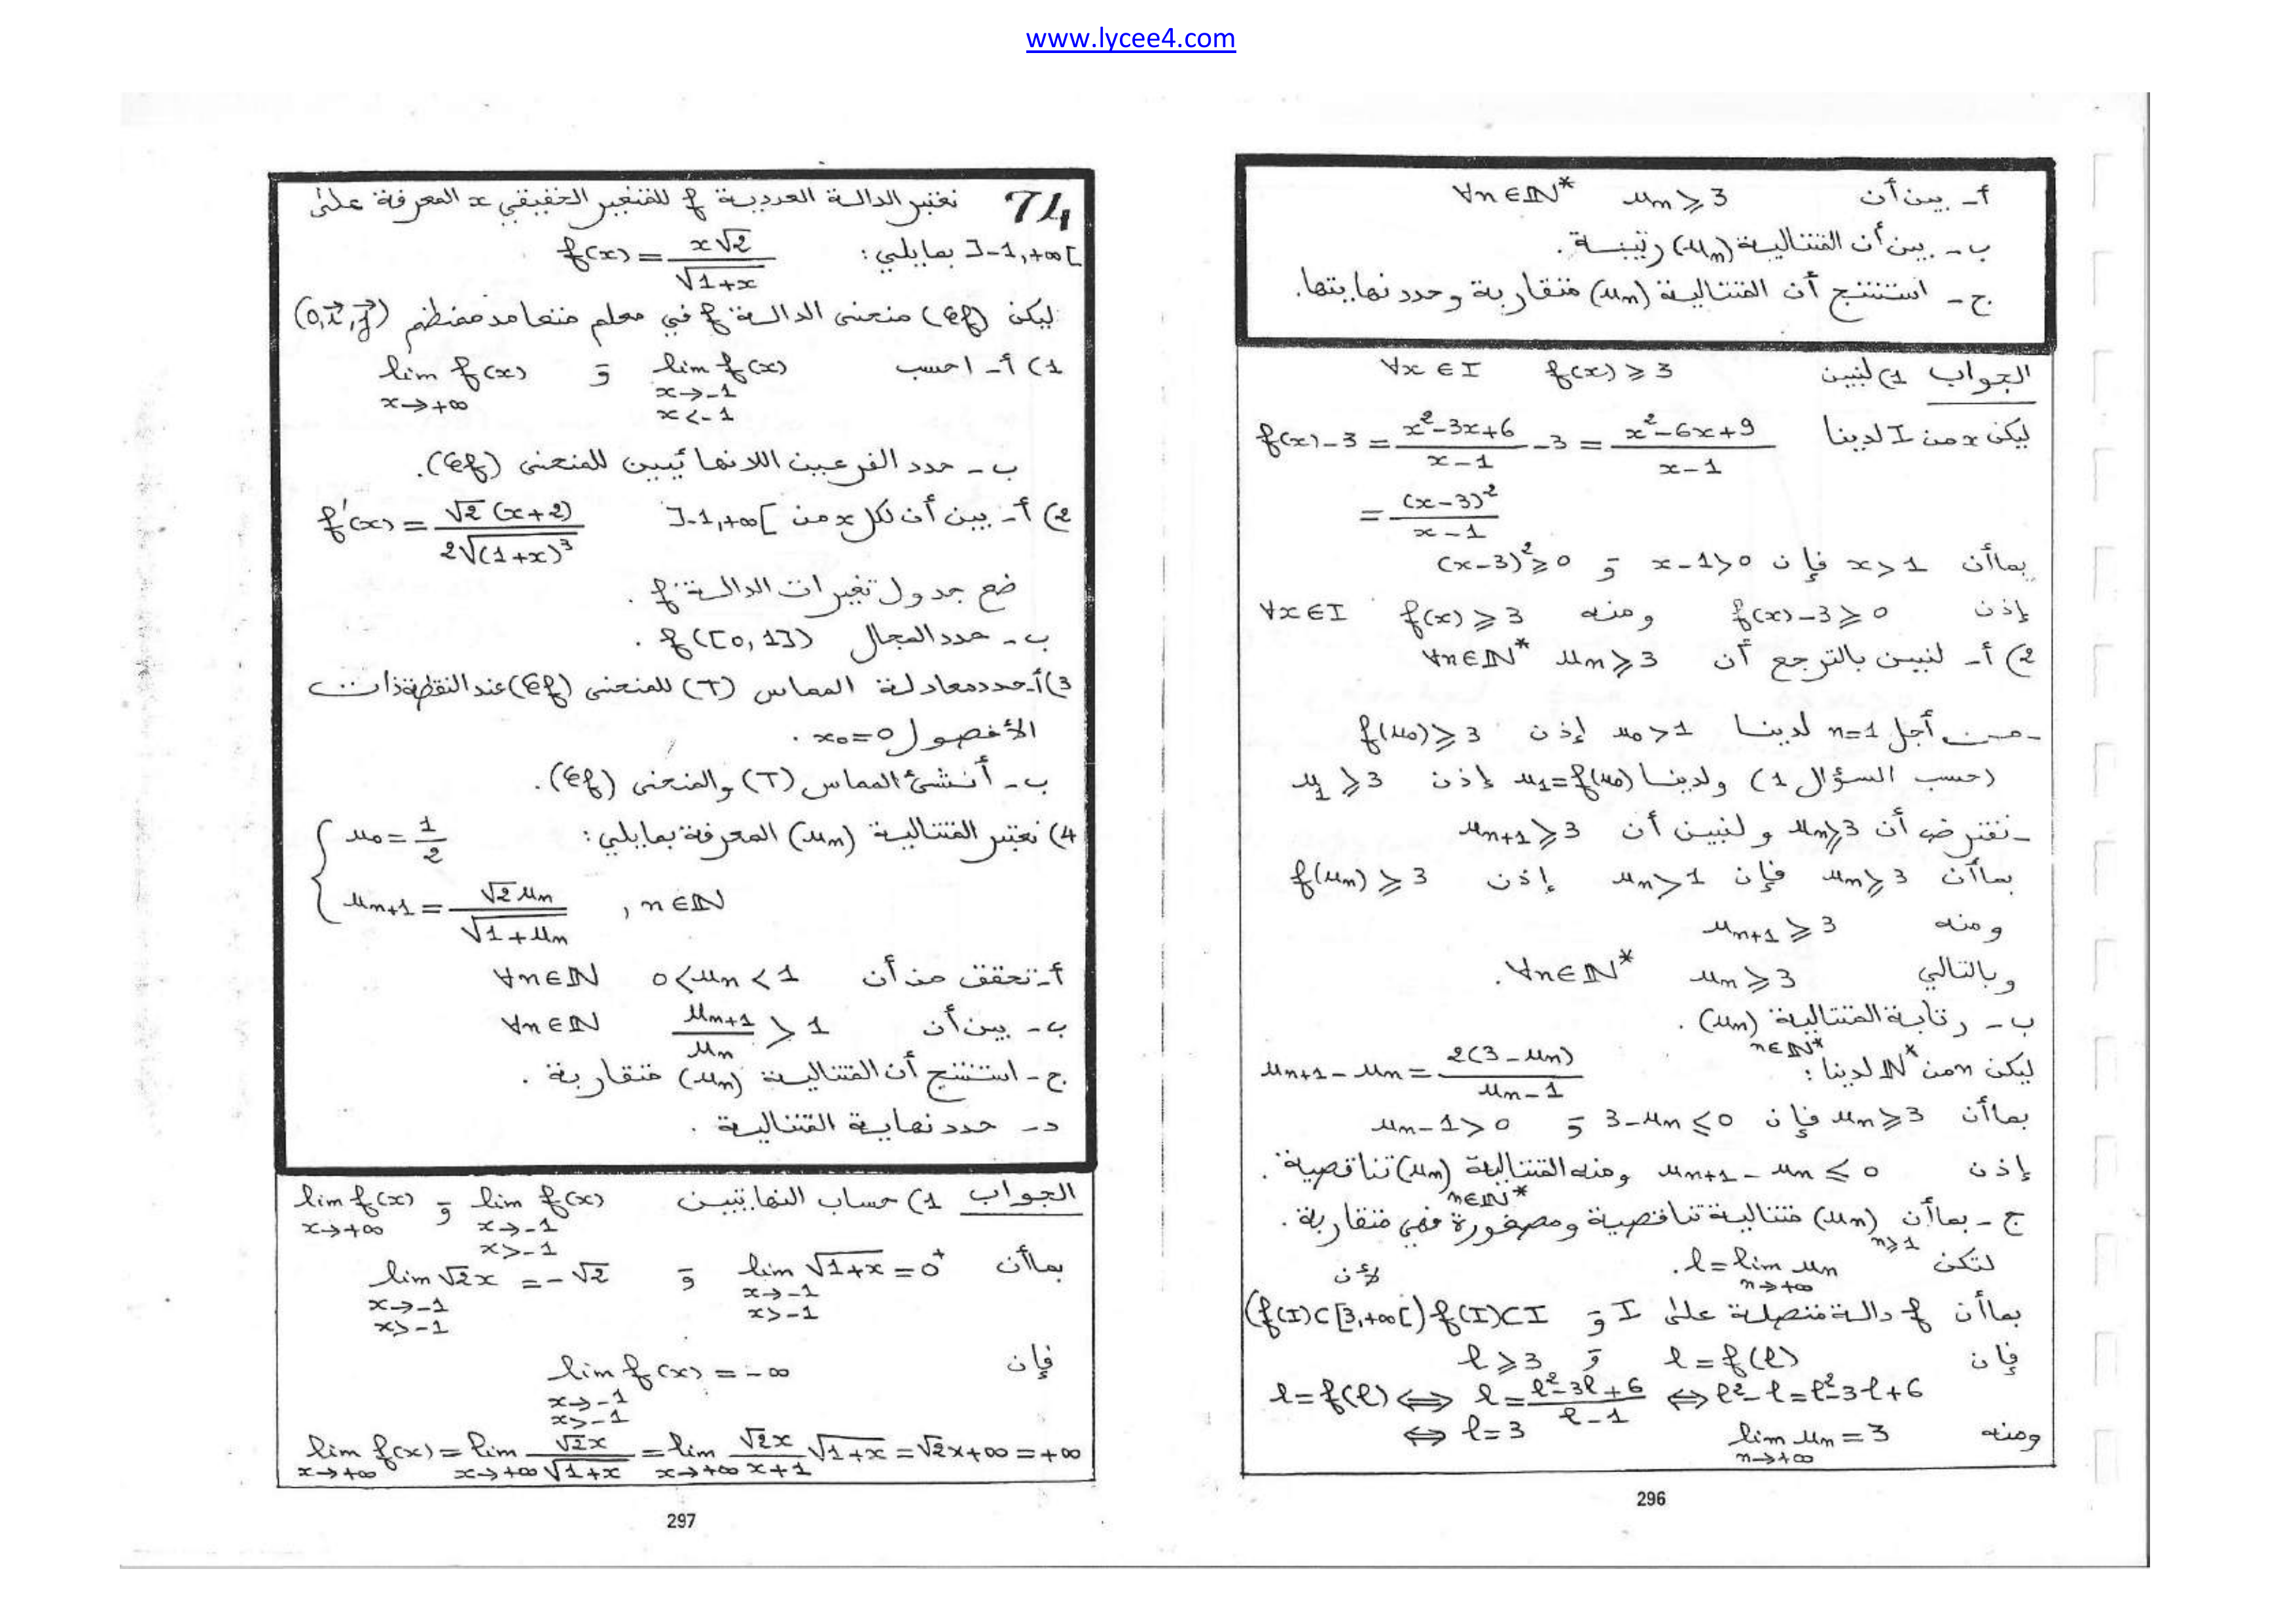 www.lycee4.com
أ- بين أن u_n ≥ 3 ∀n∈ℕ*
ب- بين أن المتتالية (u_n) رتيبة.
ج- استنتج أن المتتالية (u_n) متقاربة وحدد نهايتها.
الجواب 1) لنبين f(x) ≥ 3 ∀x∈I
ليكن x من I لدينا f(x)-3 = (x²-3x+6)/(x-1) - 3 = (x²-6x+9)/(x-1)
= (x-3)²/(x-1)
بما أن x>1 فإن x-1>0 و (x-3)²≥0
إذن f(x)-3≥0 ومنه f(x)≥3 ∀x∈I
2) أ- لنبين بالترجع أن u_n≥3 ∀n∈ℕ*
- من أجل n=1 لدينا u_0>1 إذن f(u_0)≥3
(حسب السؤال 1) ولدينا u_1=f(u_0) إذن u_1≥3
- نفترض أن u_n≥3 ولنبين أن u_{n+1}≥3
بما أن u_n≥3 فإن u_n>1 إذن f(u_n)≥3
ومنه u_{n+1}≥3
وبالتالي u_n≥3 ∀n∈ℕ*.
ب- رتابة المتتالية (u_n)_{n∈ℕ*}.
ليكن n من ℕ* لدينا: u_{n+1}-u_n = 2(3-u_n)/(u_n-1)
بما أن u_n≥3 فإن 3-u_n≤0 و u_n-1>0
إذن u_{n+1}-u_n≤0 ومنه المتتالية (u_n)_{n∈ℕ*} تناقصية.
ج- بما أن (u_n)_{n≥1} متتالية تناقصية ومصغورة فهي متقاربة.
لتكن l = lim_{n→+∞} u_n. لأن
بما أن f دالة متصلة على I و f(I)⊂I (f(I)⊂[3,+∞[)
فإن l=f(l) و l≥3
l=f(l) ⟺ l=(l²-3l+6)/(l-1) ⟺ l²-l=l²-3l+6
⟺ l=3
ومنه lim_{n→+∞} u_n=3
296
74 نعتبر الدالة العددية f للمتغير الحقيقي x المعرفة على
]-1,+∞[ بمايلي: f(x) = x√2/√(1+x)
ليكن (Cf) منحنى الدالة f في معلم متعامد ممنظم (0,i⃗,j⃗)
1) أ- احسب lim_{x→-1, x<-1} f(x) و lim_{x→+∞} f(x)
ب- حدد الفرعين اللانهائيين للمنحنى (Cf).
2) أ- بين أن لكل x من ]-1,+∞[ f'(x) = √2(x+2)/(2√(1+x)³)
ضع جدول تغيرات الدالة f.
ب- حدد المجال f([0,1]).
3) أ- حدد معادلة المماس (T) للمنحنى (Cf) عند النقطة ذات
الأفصول x_0=0.
ب- أنشئ المماس (T) والمنحنى (Cf).
4) نعتبر المتتالية (u_n) المعرفة بمايلي: { u_0 = 1/2
u_{n+1} = √2u_n/√(1+u_n) , n∈ℕ
أ- تحقق من أن 0<u_n<1 ∀n∈ℕ
ب- بين أن u_{n+1}/u_n > 1 ∀n∈ℕ
ج- استنتج أن المتتالية (u_n) متقاربة.
د- حدد نهاية المتتالية.
الجواب 1) حساب النهايتين lim_{x→-1, x>-1} f(x) و lim_{x→+∞} f(x)
بما أن lim_{x→-1, x>-1} √(1+x) = 0⁺ و lim_{x→-1, x>-1} √2x = -√2
فإن lim_{x→-1, x>-1} f(x) = -∞
lim_{x→+∞} f(x) = lim_{x→+∞} √2x/√(1+x) = lim_{x→+∞} √2x/(x+1) √(1+x) = √2×+∞ = +∞
297